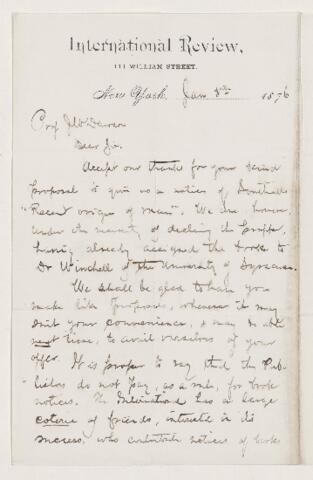 International Review,
111 WILLIAM STREET.
New York, Jan 8th 1876
Prof J W Dawson
Dear Sir.
Accept our thanks for your kind
proposal to give us a notice of Southall's
"Recent origin of man". We are however
under the necessity of declining the proffer,
having already assigned the book to
Dr Winchell of the University of Syracuse.
We shall be glad to have you
make like proposals, whenever it may
suit your convenience, & may be able
next time, to avail ourselves of your
offer. It is proper to say that the Pub-
lishers do not pay, as a rule, for book
notices. The International has a large
coterie of friends, interested in its
success, who contribute notices of books